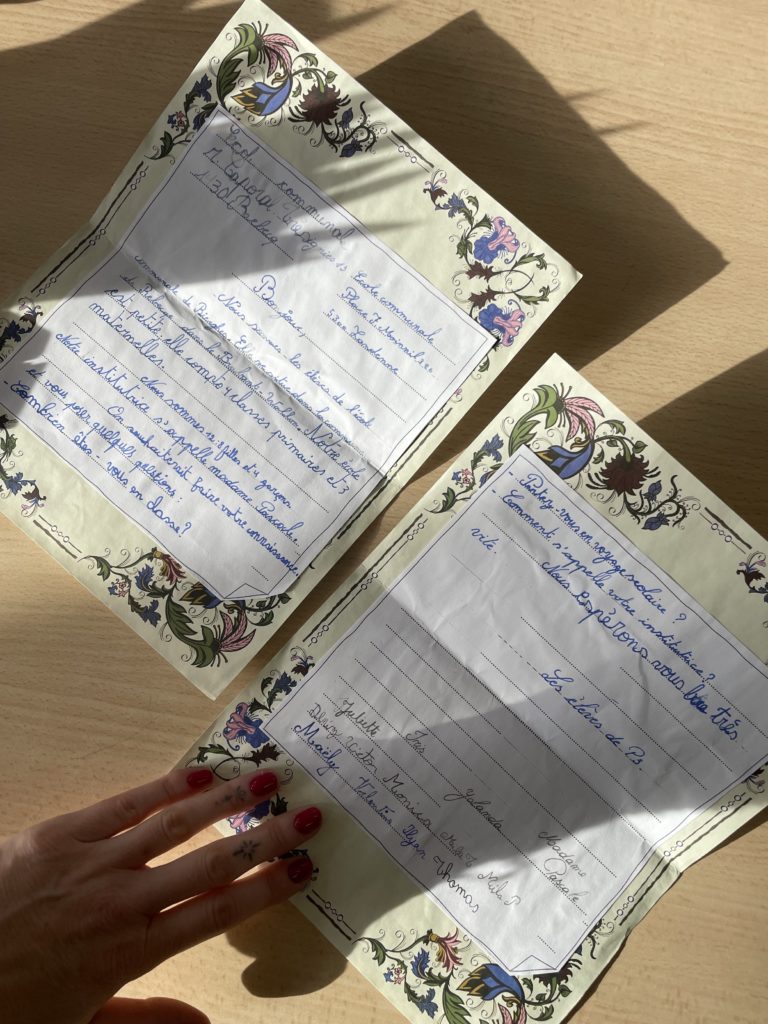 École communal
1430 Rebecq
École communale
Place J. Mainil
Bonjour,
Nous sommes les élèves de l'école
communale de
est petite, elle compte classes primaires et 3
maternelles.
Nous sommes filles et garçons
Notre institutrice s'appelle madame Pascale.
On souhaiterait faire votre connaissance
et vous poser quelques questions.
- Combien êtes-vous en classe?
- Partez-vous en voyage scolaire?
- Comment s'appelle votre institutrice?
Nous espérons vous lire très
vite.
Les élèves de P3.
Juliette Iris Yolanda Madame
Pascale
Victon Monica Mila P
Maëly Valentin Ilyan Thomas